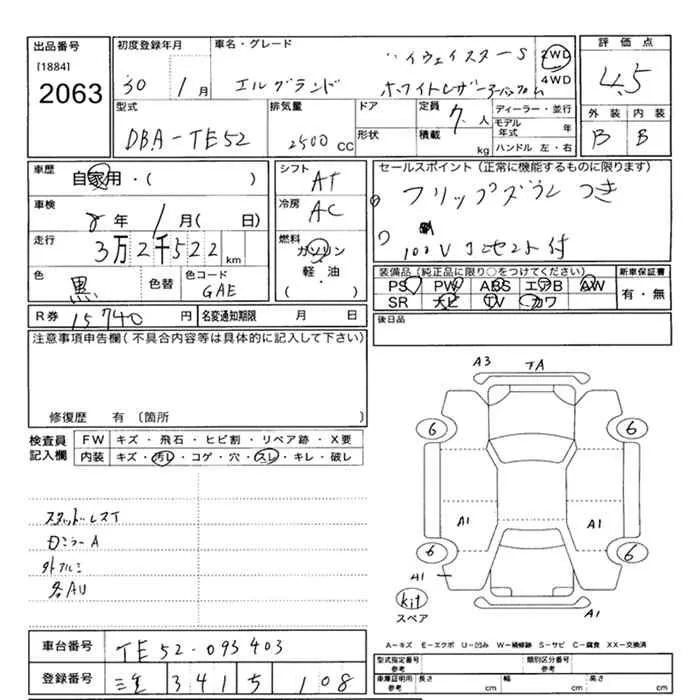 出品番号
[1884]
2063
初度登録年月
30 1月
車名・グレード
ハイウェイスターS
エルグランド
ホワイトレザー
2WD
4WD
評価点
4.5
外装 内装
B B
型式
DBA-TE52
排気量
2500 CC
ドア
形状
定員
7人
積載
kg
ディーラー・並行
モデル年式 年
ハンドル 左・右
車歴
自家用・( )
車検
8年 1月( 日)
走行
3万2千522 km
色
黒
色替
色コード
GAE
シフト
AT
冷房
AC
燃料
ガソリン
軽・油
( )
セールスポイント(正常に機能するものに限ります)
フリップダウン つき
100V コセント付
装備品(純正品に限り○をつけてください)
PS PW ABS エアB AW
SR ナビ TV カワ
新車保証書
有・無
後日品
R券 15740円
名変通知期限 月 日
注意事項申告欄(不具合内容等は具体的に記入して下さい)
修復歴 有(箇所 )
検査員
記入欄
FW キズ・飛石・ヒビ割・リペア跡・X要
内装 キズ・汚レ・コゲ・穴・スレ・キレ・破レ
スタッドレスT
Dミラー A
外アルミ
各AU
A3 TA
6 6
A1 A1
6 6
A1
kit
スペア
A1
A-キズ E-エクボ U-凹み W-補修跡 S-サビ C-腐食 XX-交換済
車台番号
TE52-093403
登録番号
341 5 108
型式指定番号
参考
類別区分番号
参考
車庫証明用
参考
長さ cm
幅 cm
高さ cm